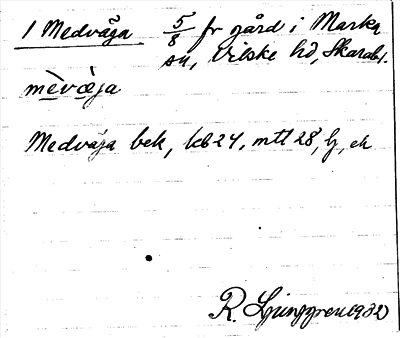 1 Medväga 5/8 fr gård i Marka
sn, Vilske hd, Skarab.
mèvæ̀ja
Medväga bek, kb 24, mtl 28, lj, ek
R. Ljunggren 1932